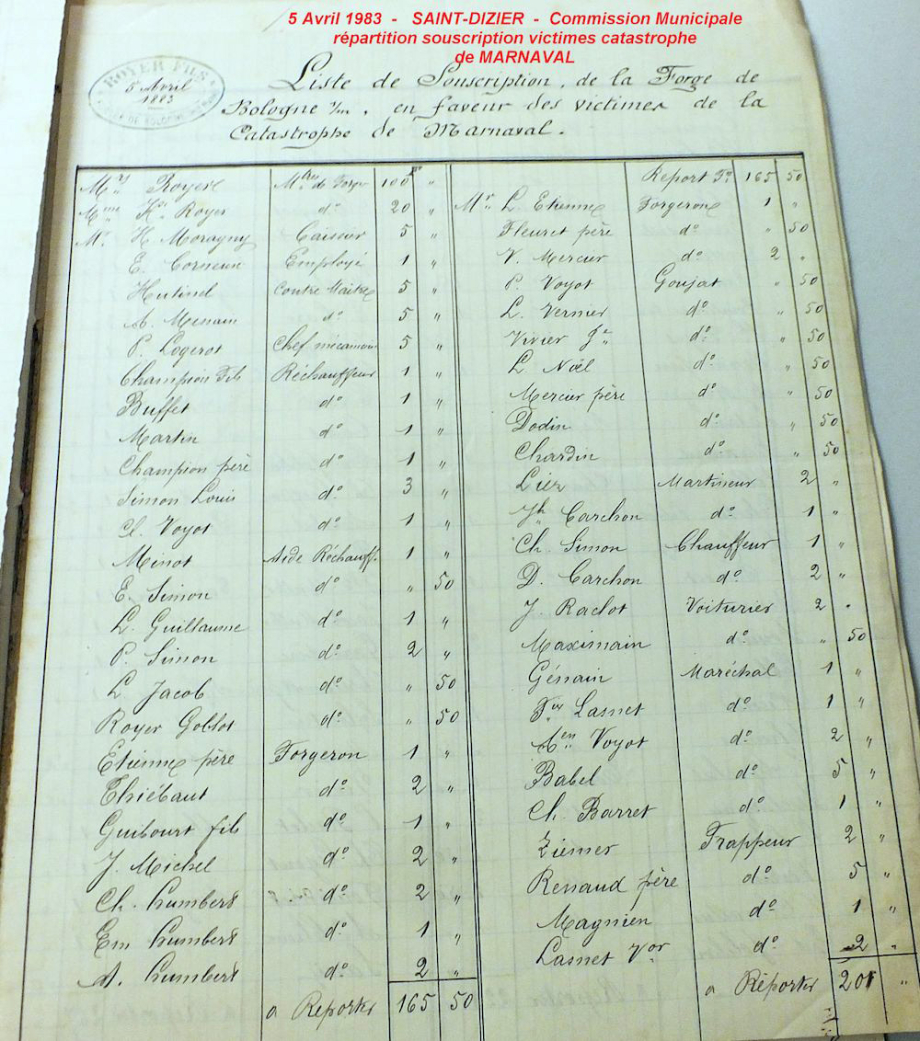 5 Avril 1983 - SAINT-DIZIER - Commission Municipale
répartition souscription victimes catastrophe
de MARNAVAL
ROYER FILS
5 Avril
1883
Liste de Souscription, de la Forge de
Bologne en faveur des victimes de la
Catastrophe de Marnaval.
Mrs Royer Mtres de Forge 100 "
Mme Royer do 20 "
Mr. H. Moragny Caissier 5 "
E. Corneux Employé 1 "
Hutinel Contre Maître 5 "
A. Menain do 5 "
P. Logerot Chef mécanicien 5 "
Champion Fils Réchauffeur 1 "
Buffet do 1 "
Martin do 1 "
Champion père do 1 "
Simon Louis do 3 "
Voyot do 1 "
Minot Aide Réchauff. 1 "
E. Simon do " 50
L. Guillaume do 1 "
P. Simon do 2 "
L. Jacob do " 50
Royer Goblot do " 50
Etienne père Forgeron 1 "
Thiébaut do 2 "
Guibourt fils do 1 "
J. Michel do 2 "
Ch. Humbert do 2 "
Em Humbert do 1 "
A. Humbert do 2 "
a Réporter 165 50
Report 165 50
Mr L Etienne Forgeron 1 "
Fleuret père do " 50
V. Mercier do 2 "
P. Voyot Goujat " 50
L. Vernier do " 50
Vivier Je do " 50
L Noël do " 50
Mercier père do " 50
Dodin do " 50
Chardin do " 50
Liez Martineur 2 "
Jh Carchon do 1 "
Ch. Simon Chauffeur 1 "
D. Carchon do 2 "
J. Raclot Voiturier 2 "
Maximain do " 50
Génain Maréchal 1 "
Lasnet do 1 "
Voyot do 2 "
Babel do 5 "
Ch. Barret do 1 "
Ziemer Frappeur 2 "
Renaud père do 5 "
Magnien do 1 "
Lasnet Vor do 2 "
a Réporter 201 "